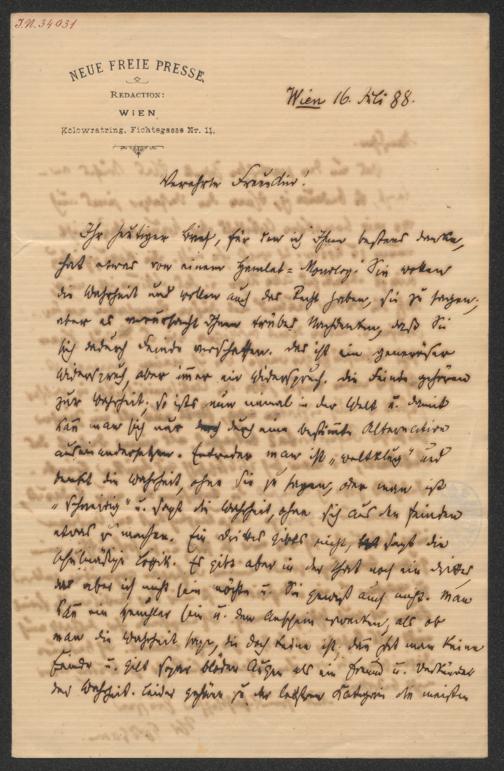 J.N. 34031
NEUE FREIE PRESSE.
REDACTION:
WIEN
Kolowratring, Fichtegasse Nr. 11.
Wien 16. Juli 88.
Verehrte Freundin!
Ihr heutiger Brief, für den ich Ihnen bestens danke,
hat etwas von einem Hamlet-Monolog. Sie wollen
die Wahrheit und wollen auch das Recht haben, sie zu sagen,
aber es verursacht Ihnen trübes Nachdenken, daß Sie
sich dadurch Feinde verschaffen. Das ist ein generöser
Widerspruch, aber immer ein Widerspruch. Die Feinde gehören
zur Wahrheit, so ists nun einmal in der Welt u. damit
kann man sich nur durch eine bestimmte Alternative
auseinandersetzen. Entweder man ist „weltklug" und
denkt die Wahrheit, ohne sie zu sagen, oder man ist
„schneidig" u. sagt die Wahrheit, ohne sich aus den Feinden
etwas zu machen. Ein Drittes gibts nicht, sagt die
schulmäßige Logik. Es gibt aber in der That noch ein drittes
das aber ich nicht sein möchte u. Sie gewiß auch nicht. Man
kann ein Heuchler sein u. den Anschein erwecken, als ob
man die Wahrheit sage, die doch keine ist, dann hat man keine
Feinde u. gilt sogar blöden Augen als ein Freund u. Verkünder
der Wahrheit. Leider gehören zu der letzten Kategorie die meisten